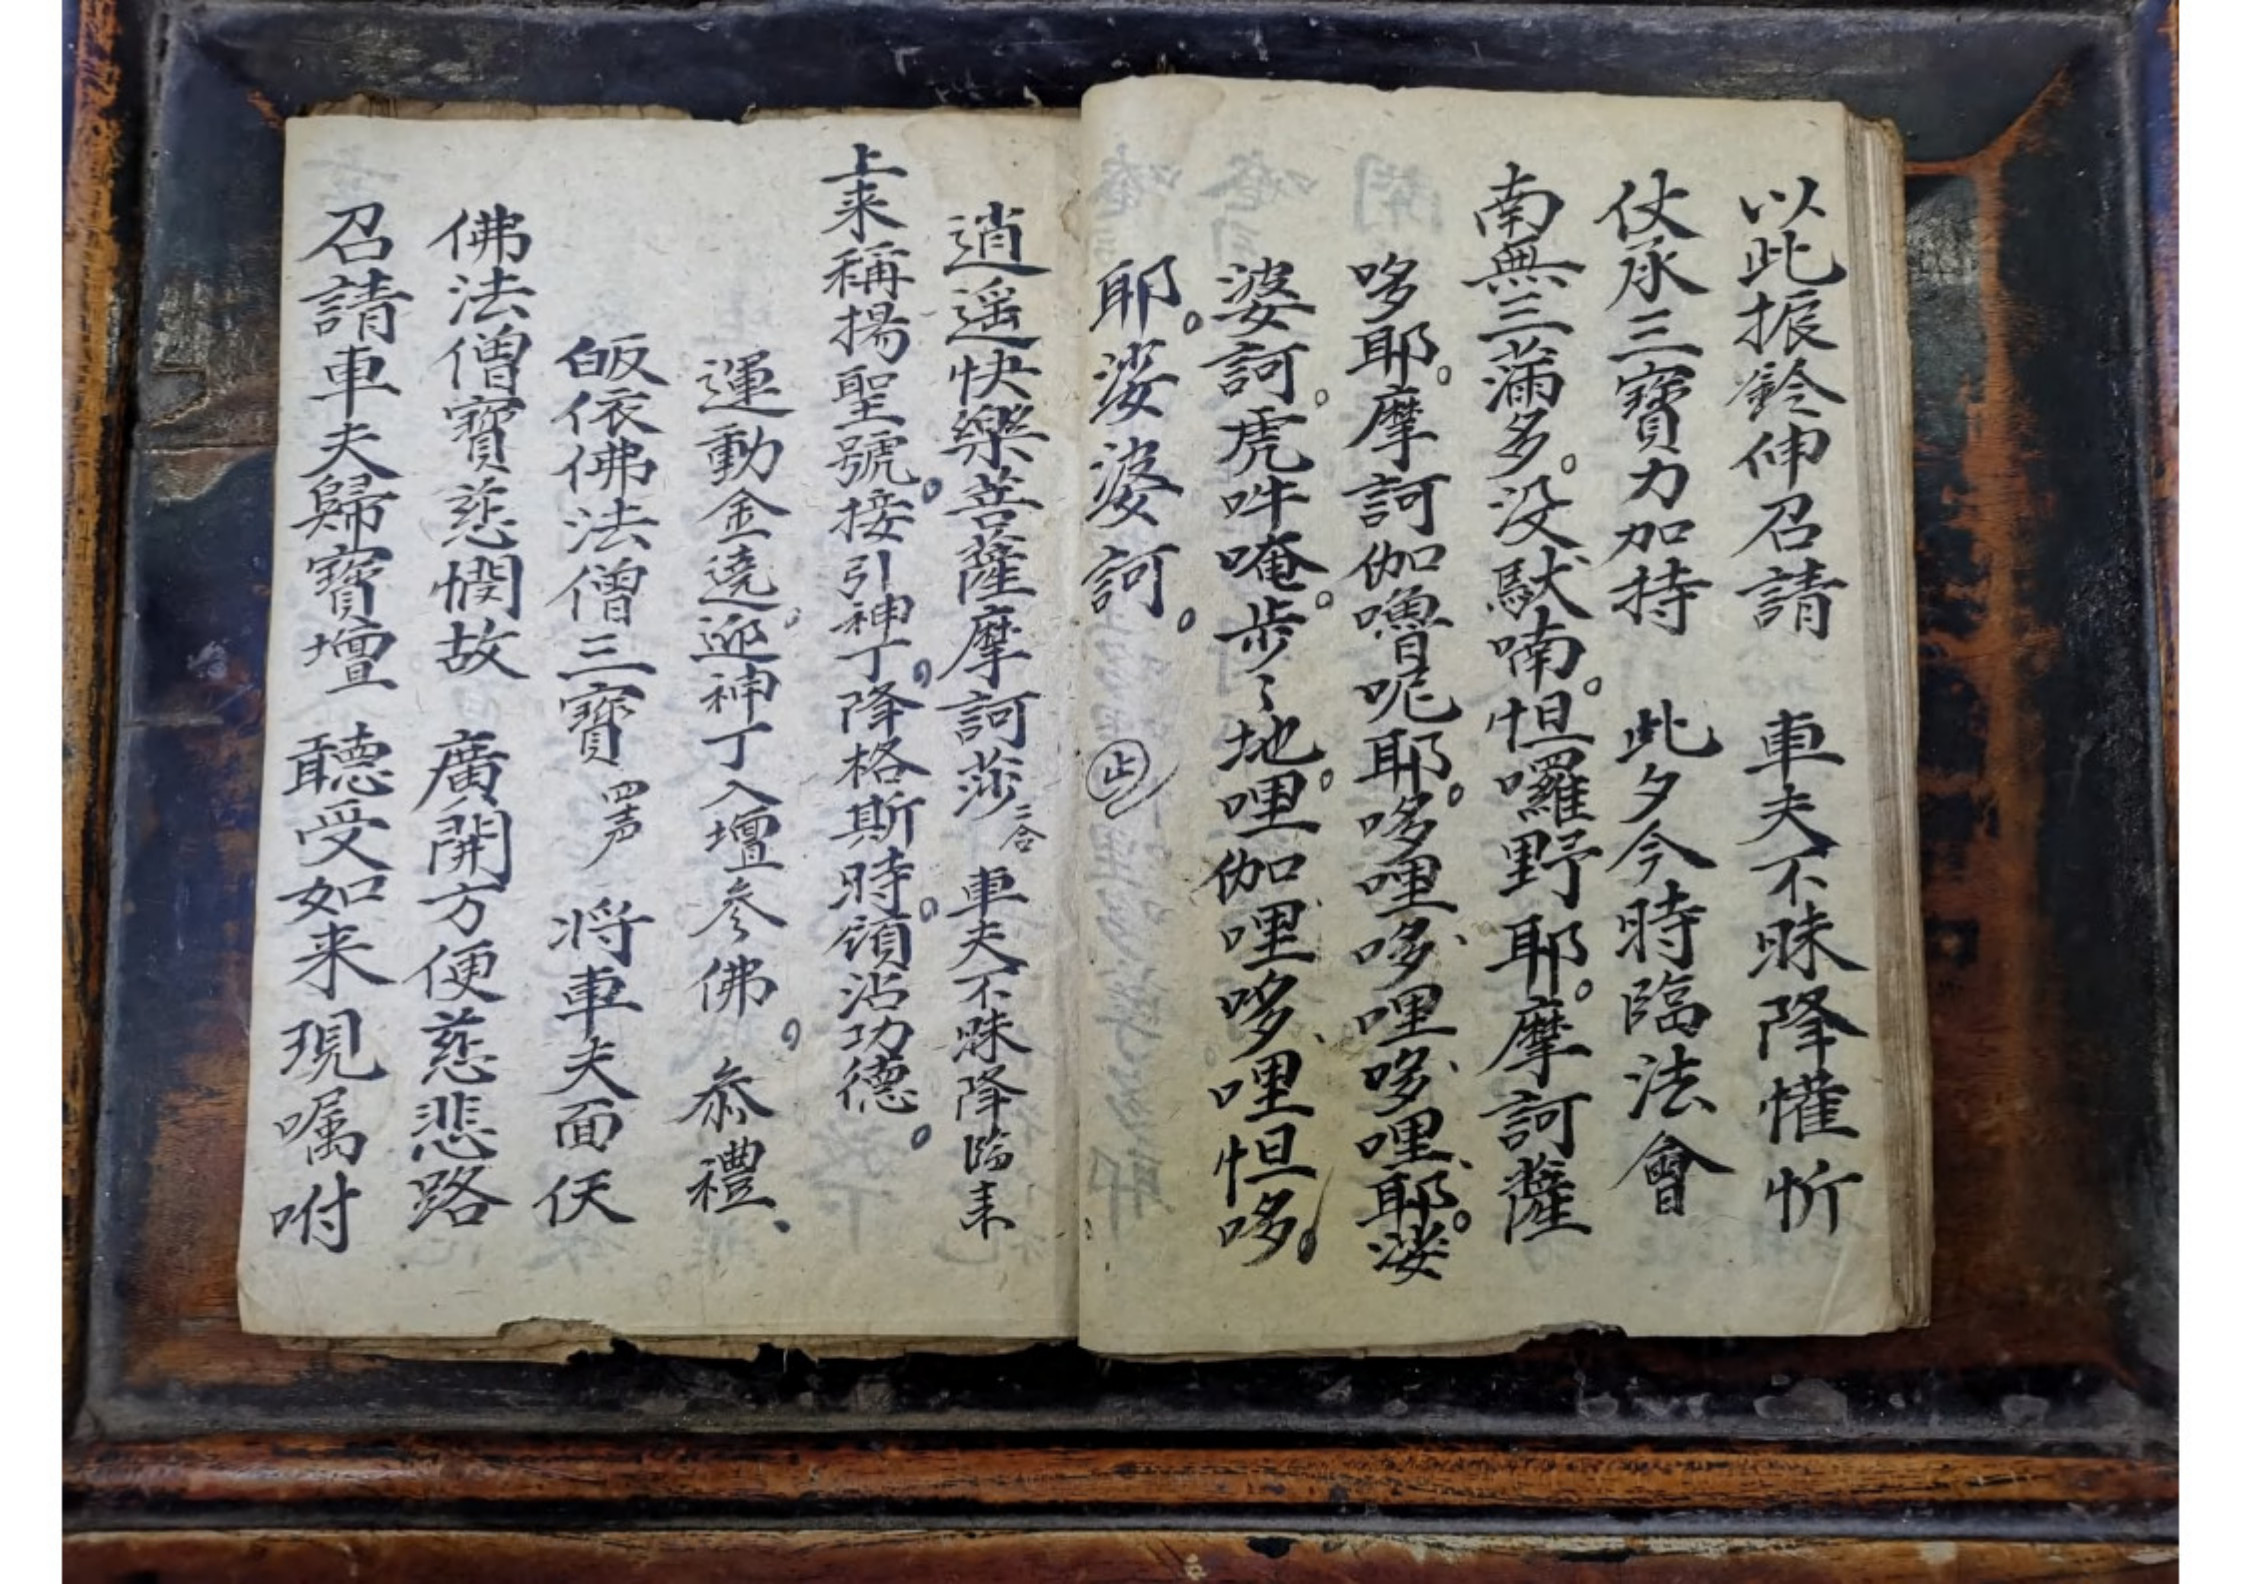 以此振鈴伸召請　車夫不昧降懽忻
仗承三寶力加持　此夕今時臨法會
南無三滿多。没馱喃。怛囉野耶。摩訶薩
哆耶。摩訶伽嚕呢耶。哆哩哆哩哆哩耶。娑
婆訶。虎吽唵。步步地。哩伽哩哆哩怛哆。
耶。娑婆訶。止
逍遥快樂菩薩摩訶莎二合　車夫不昧降臨来
上来稱揚聖號。接引神丁。降格斯時。領沾功德。
運動金遶。迎神丁入壇参佛。　叅禮、
皈依佛法僧三寶四声　将車夫面伏
佛法僧寶慈憫故　廣開方便慈悲路
召請車夫歸寶壇　聽受如来現嘱咐